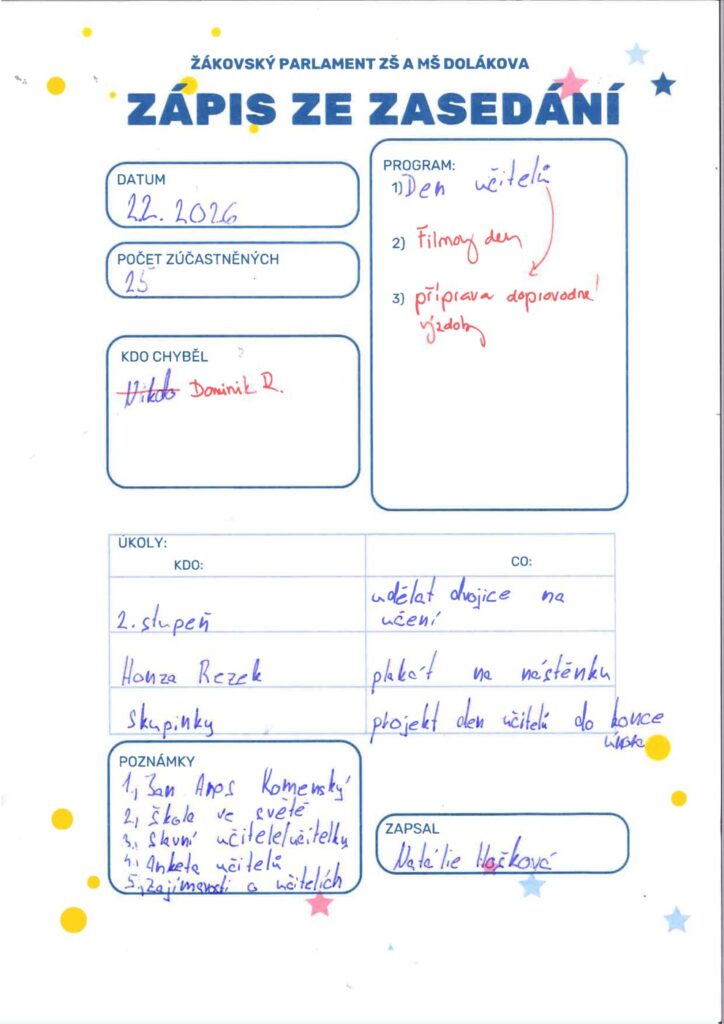 ŽÁKOVSKÝ PARLAMENT ZŠ A MŠ DOLÁKOVA
ZÁPIS ZE ZASEDÁNÍ
DATUM
22. 2026
POČET ZÚČASTNĚNÝCH
25
KDO CHYBĚL
Nikdo Dominik R.
PROGRAM:
1) Den učitelů
2) Filmový den
3) příprava doprovodné
výzdoby
ÚKOLY:
KDO: CO:
2. stupeň udělat dvojice na
učení
Honza Rezek plakát na nástěnku
Skupinky projekt den učitelů do konce
února
POZNÁMKY
1., Jan Amos Komenský
2., Škola ve světě
3., Slavní učitelé/učitelky
4., Anketa učitelů
5., Zajímavosti o učitelích
ZAPSAL
Natálie Hošková